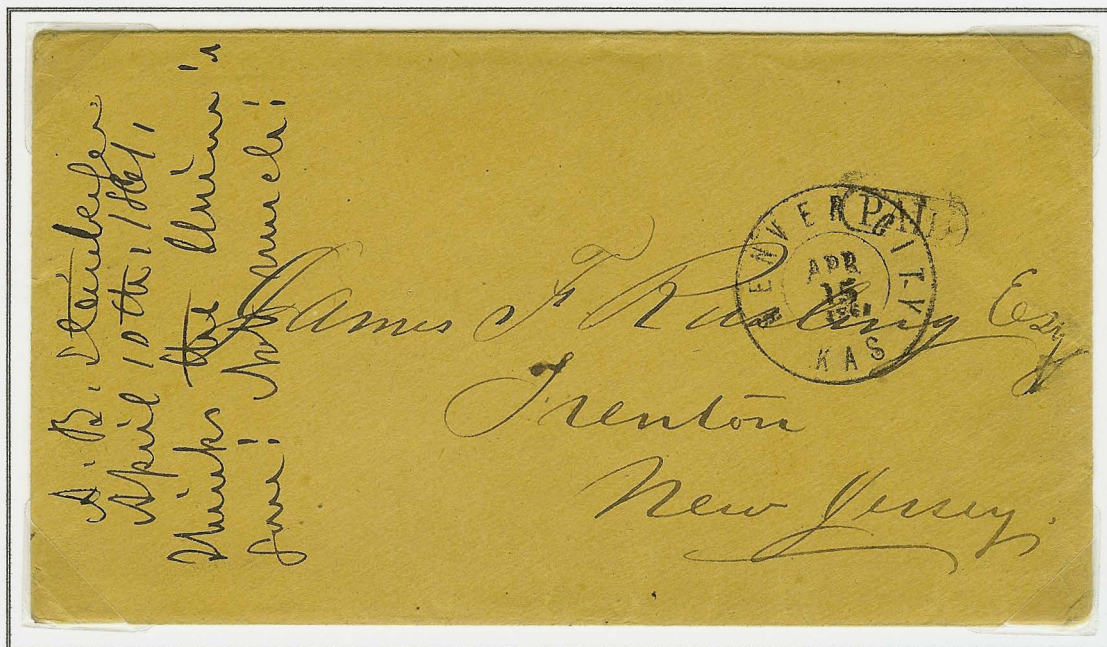 A. B. Steinberger
April 10th, 1861,
Thinks the Union's
gone! Not much!
PAID
DENVER CITY
APR
15
1861
KAS
James F Rusling Esq
Trenton
New Jersey.